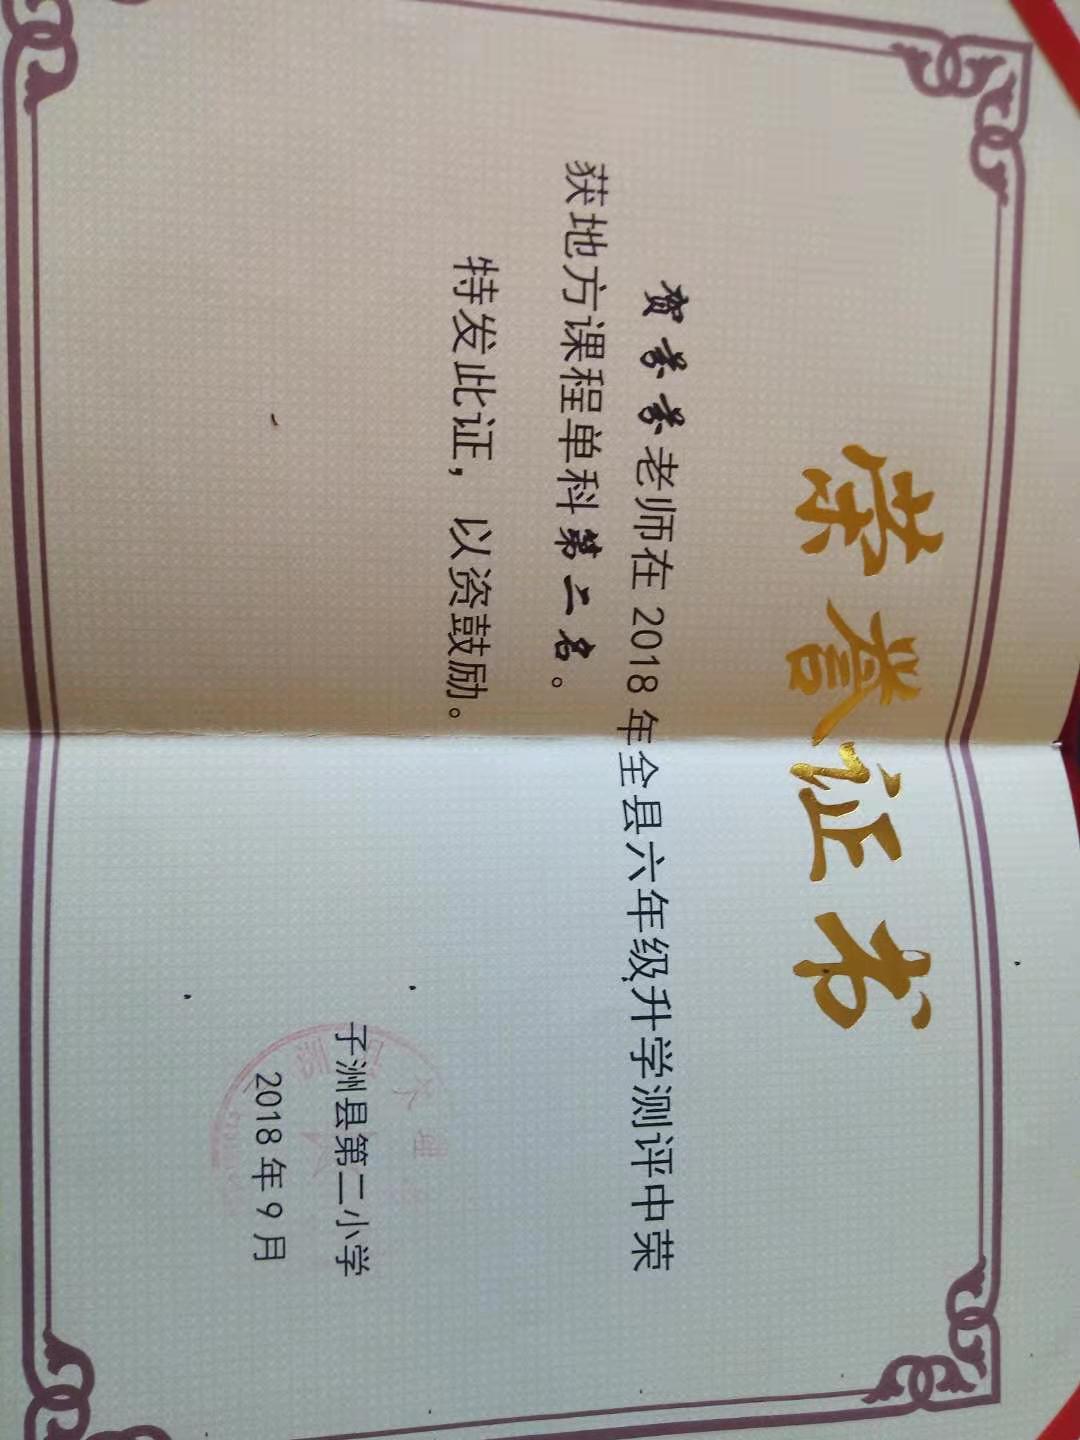 荣誉证书
贺老师在2018年全县六年级升学测评中荣
获地方课程单科第二名。
特发此证，以资鼓励。
子洲县第二小学
2018年9月